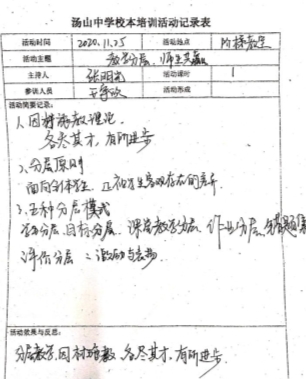 汤山中学校本培训活动记录表
活动时间 2020.11.25 活动地点 阶梯教室
活动主题 教学分层,师生共赢
主持人 张明 活动课时 1
参训人员 活动形成
活动简要记录:
1、因材施教理论.
各尽其才,有所进步
2、分层原则
面向全体学生,正视学生客观存在的差异
3、五种分层模式
学生分层 目标分层、课堂教学分层、作业分层,
评价分层 :激励与
活动效果与反思:
分层教学,因材施教,各尽其才,有所进步.